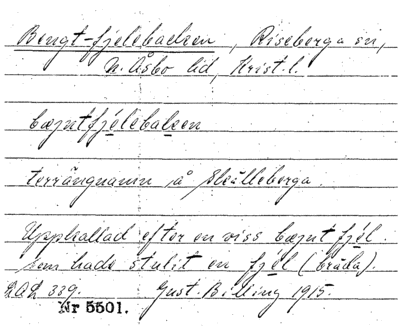 Bengt-fjelebacken, Riseberga sn,
N. Åsbo hd, Krist. l.
bæŋntfjélebakən
terrängnamn å Skälleberga.
Uppkallad efter en viss bæŋnt fjél.
som hade stulit en fjél (bräda).
L.O.L 339. Gust. Billing 1915.
Nr 5501.